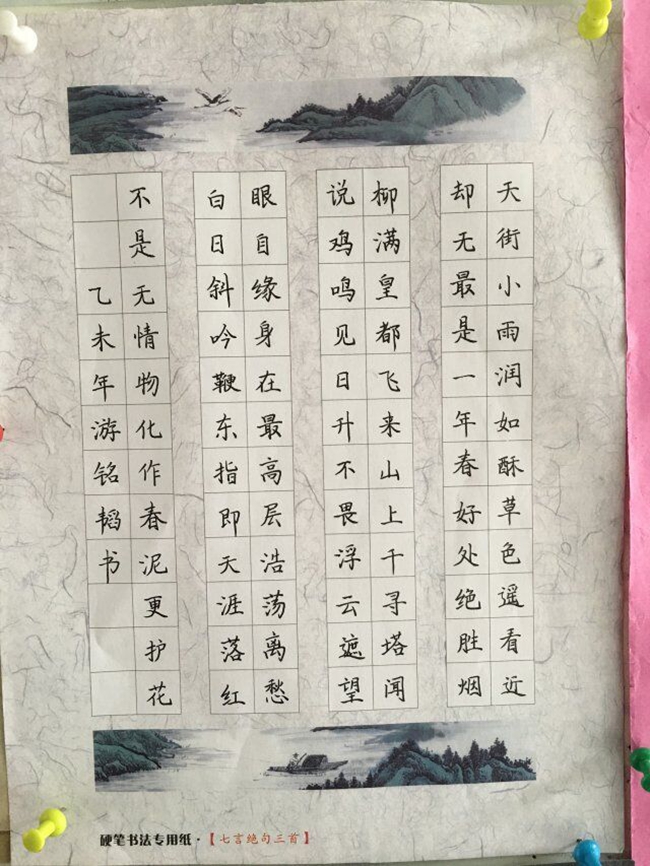 天街小雨润如酥草色遥看近
却无最是一年春好处绝胜烟
柳满皇都飞来山上千寻塔闻
说鸡鸣见日升不畏浮云遮望
眼自缘身在最高层浩荡离愁
白日斜吟鞭东指即天涯落红
不是无情物化作春泥更护花
乙未年游铭韬书
硬笔书法专用纸·【七言绝句三首】